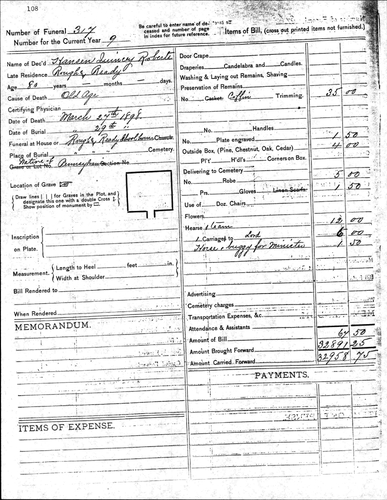 108
Number of Funeral 317
Number for the Current Year 9
Be careful to enter name of deceased and number of page in index for future reference.
Name of Dec'd Hansen Quincy Roberts
Late Residence Rough & Ready
Age 80 years months days
Cause of Death Old Age
Certifying Physician
Date of Death March 27th 1898
Date of Burial " 29th "
Funeral at House or Rough & Ready School house Church
Place of Burial " " Cemetery.
Native of Pennsylvan
Grave or Lot No. Section No.
Location of Grave
Draw lines ( ) for Graves in the Plot, and designate this one with a double Cross
Show position of monument by
Inscription on Plate.
Measurement. Length to Heel feet in.
Width at Shoulder "
Bill Rendered to
When Rendered
MEMORANDUM.
ITEMS OF EXPENSE.
Items of Bill, (cross out printed items not furnished.)
Door Crape
Draperies, Candelabra and Candles.
Washing & Laying out Remains, Shaving
Preservation of Remains
No Casket Coffin Trimming. 35 00
No. Handles
Plate engraved 1 50
Outside Box, (Pine, Chestnut, Oak, Cedar) 4 00
Pl't H'dl's Corners on Box.
Delivering to Cemetery 5 00
No. Robe
Prs. Gloves Linen Scarfs 1 50
Use of Doz. Chairs,
Flowers
Hearse & team 12 00
1 Carriages to 2nd 6 00
Horse & buggy for Minister 1 50
Advertising
Cemetery charges
Transportation Expenses, &c
Attendance & Assistants
Amount of Bill 67 50
Amount Brought Forward 32891 25
Amount Carried Forward 32958 75
PAYMENTS.